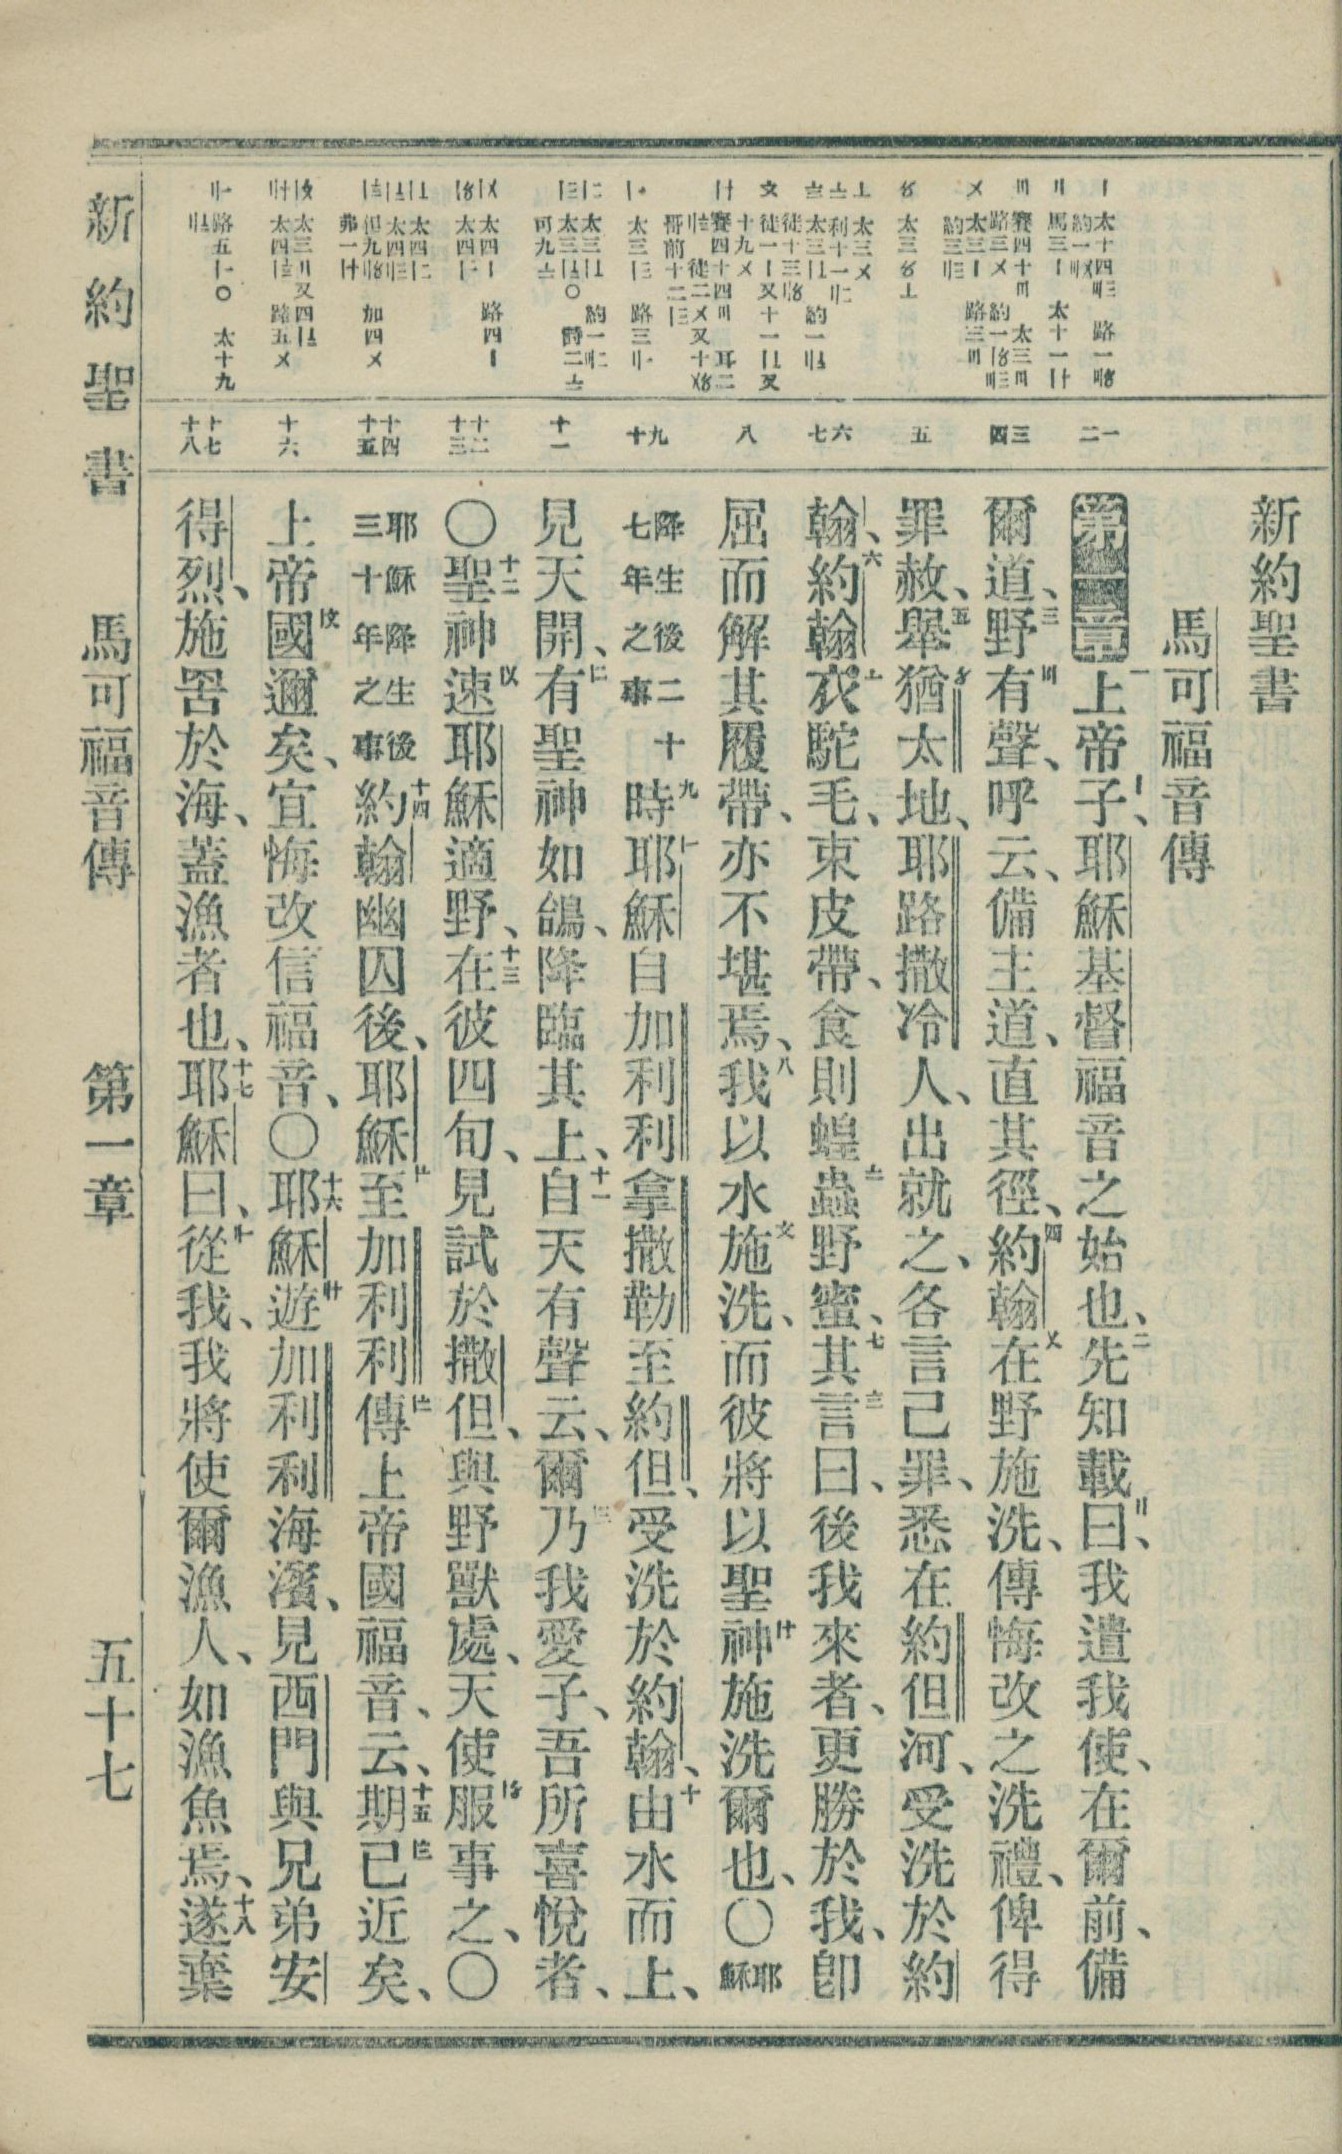 新約聖書
馬可福音傳
第一章 一上帝子、耶穌基督福音之始也、二先知載曰、我遣我使、在爾前、備
爾道、三野有聲、呼云、備主道、直其徑、四約翰在野施洗、傳悔改之洗禮、俾得
罪赦、五舉猶太地、耶路撒冷人、出就之、各言己罪、悉在約但河、受洗於約
翰、六約翰衣駝毛、束皮帶、食則蝗蟲野蜜、七其言曰、後我來者、更勝於我、卽
屈而解其履帶、亦不堪焉、八我以水施洗、而彼將以聖神施洗爾也、〇耶穌
降生後二十七年之事 九時耶穌自加利利拿撒勒至約但、受洗於約翰、十由水而上、
見天開、有聖神如鴿、降臨其上、十一自天有聲云、爾乃我愛子、吾所喜悅者、
〇十二聖神速耶穌適野、十三在彼四旬、見試於撒但、與野獸處、天使服事之、〇
耶穌降生後三十年之事 十四約翰幽囚後、耶穌至加利利傳上帝國福音、云、十五期已近矣、
上帝國邇矣、宜悔改信福音、〇十六耶穌遊加利利海濱、見西門與兄弟安
得烈、施罟於海、蓋漁者也、十七耶穌曰、從我、我將使爾漁人、如漁魚焉、十八遂棄
新約聖書 馬可福音傳 第一章 五十七